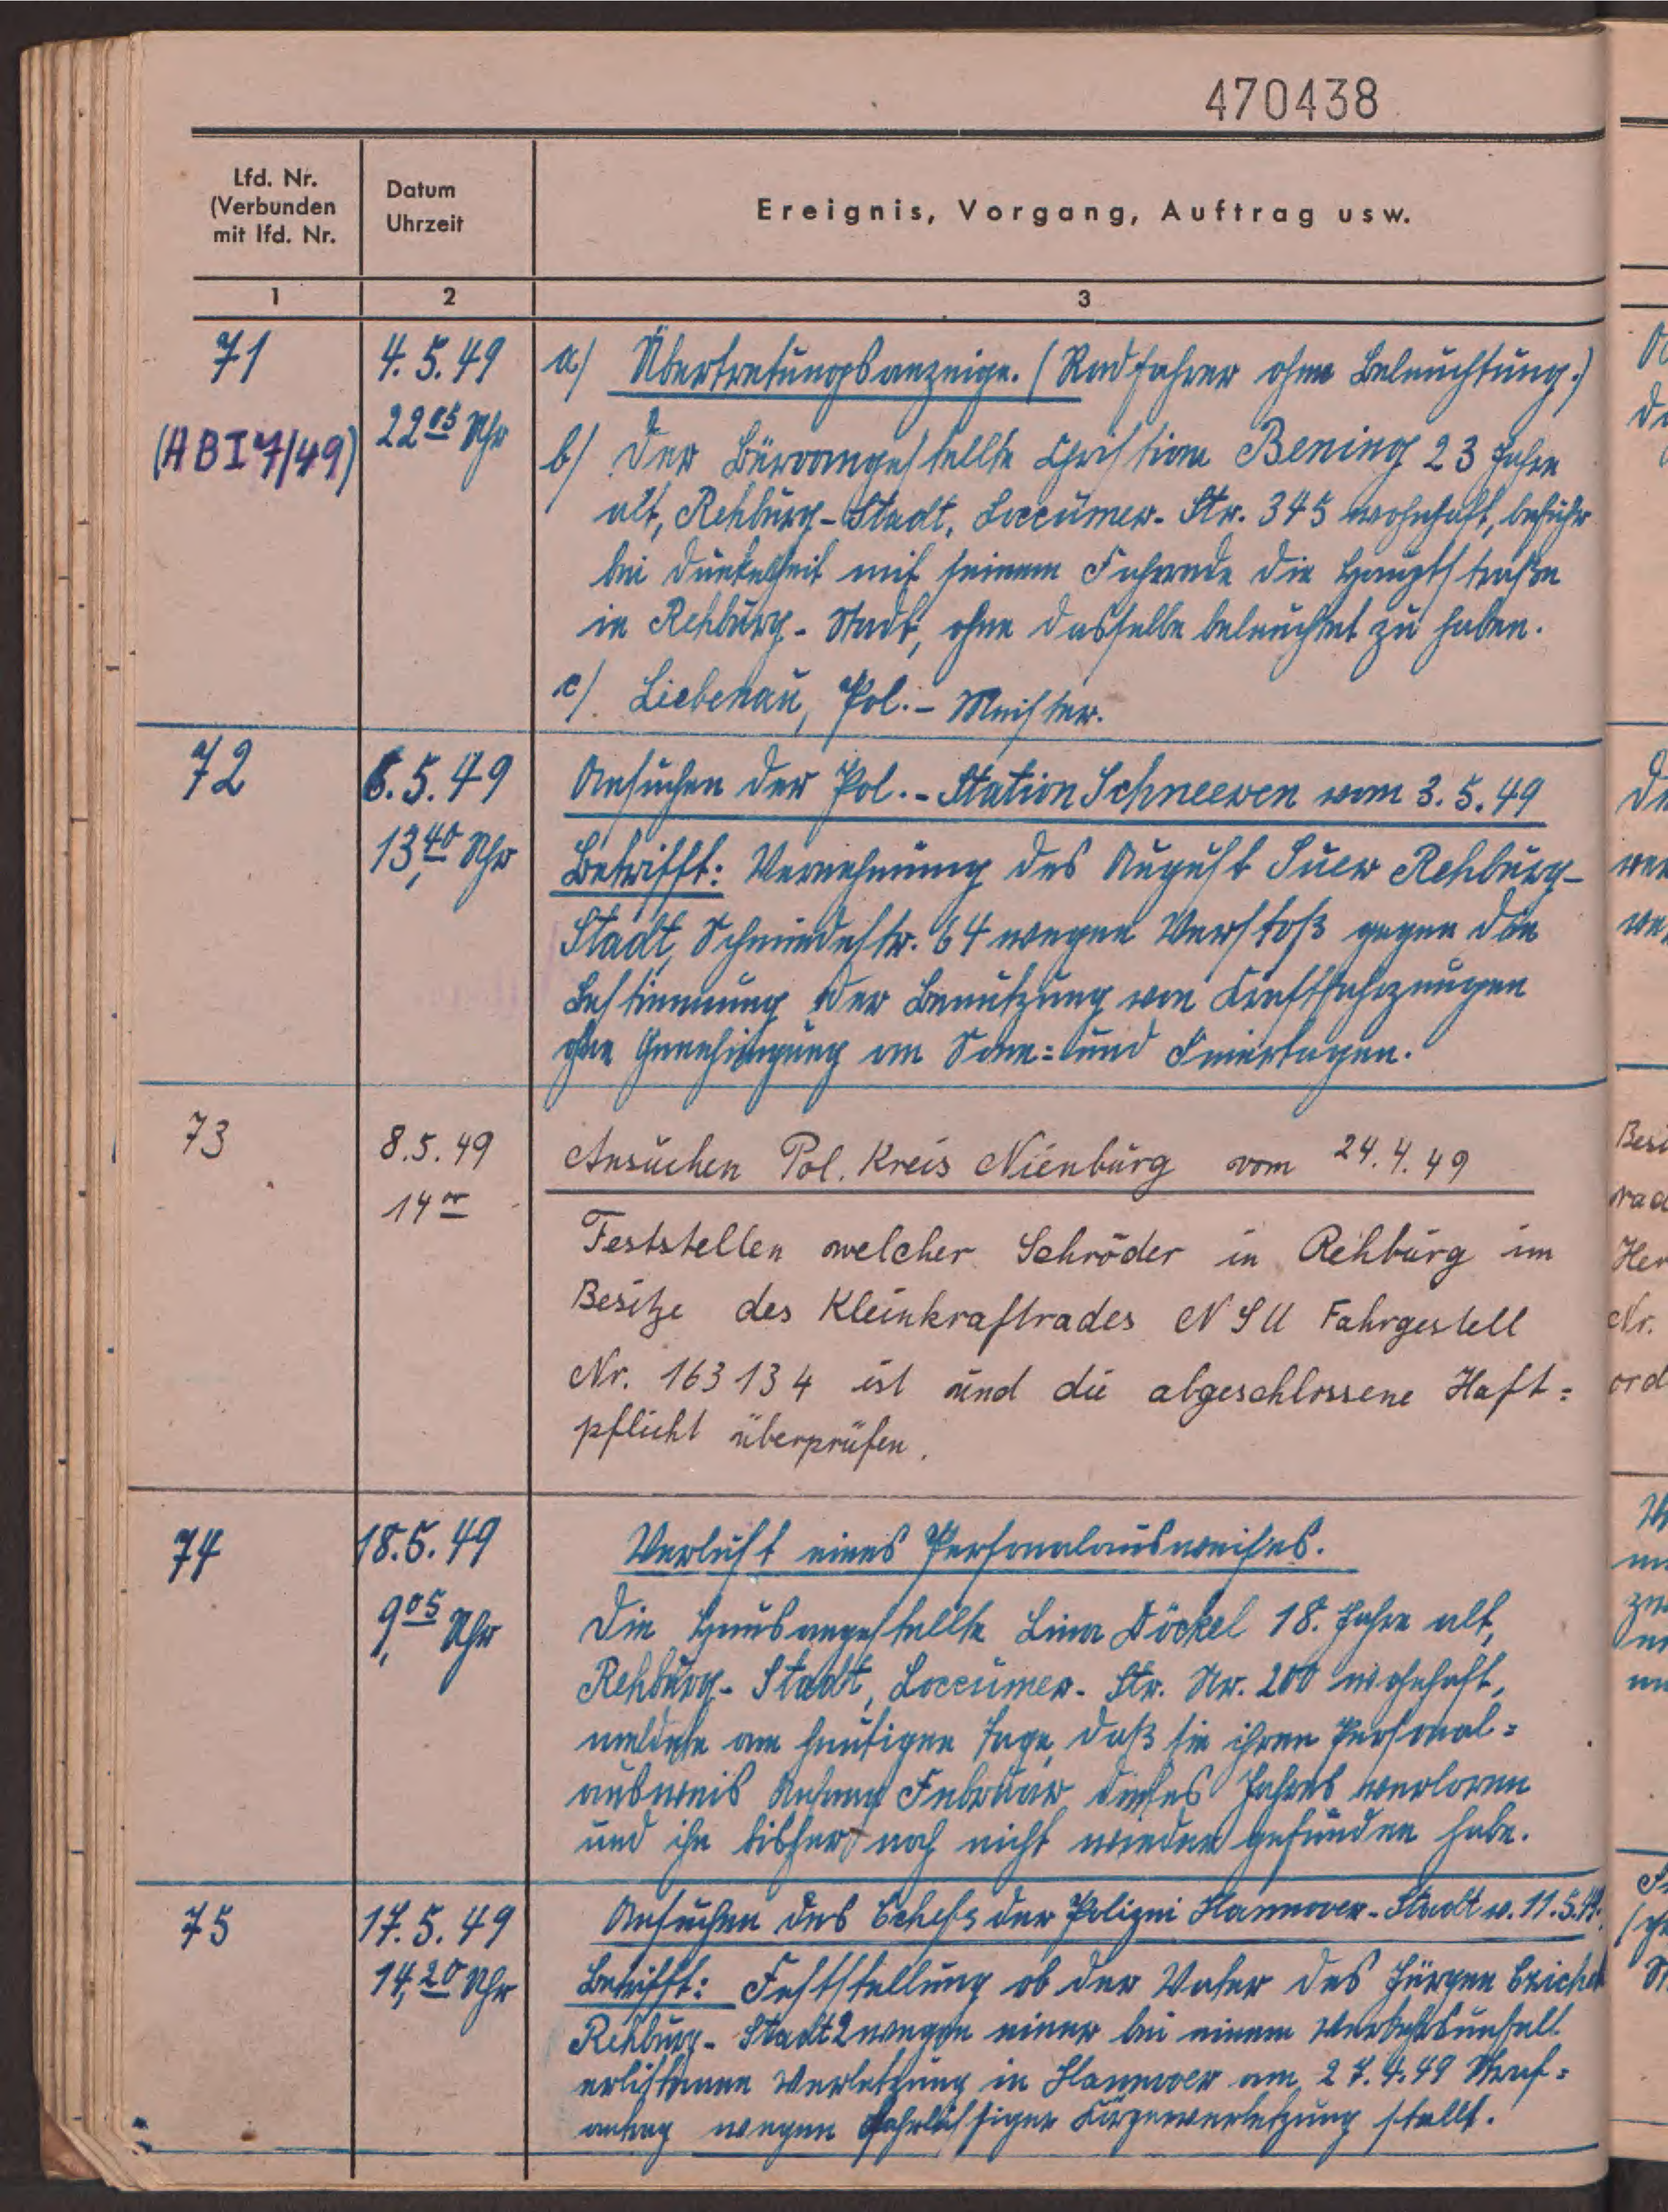 470438
Lfd. Nr.
(Verbunden
mit lfd. Nr.
Datum
Uhrzeit
Ereignis, Vorgang, Auftrag usw.
1
2
3
71
(HBI 7/49)
4.5.49
22 05 Uhr
a) Übertretungsanzeige. (Radfahrer ohne Beleuchtung.)
b) Der Büroangestellte Christian Bening 23 Jahre
alt, Rehburg-Stadt, Loccumer-Str. 345 wohnhaft, befuhr
bei Dunkelheit mit seinem Fahrrade die Hauptstraße
in Rehburg-Stadt, ohne dasselbe beleuchtet zu haben.
c) Liebenau, Pol.-Meister.
72
6.5.49
13,40 Uhr
Ansuchen der Pol.-Station Schneeren vom 3.5.49
Betrifft: Vernehmung des August Suer Rehburg-
Stadt, Schmiedestr. 64 wegen Verstoß gegen die
Bestimmung der Benutzung von Kraftfahrzeugen
ohne Genehmigung an Sonn= und Feiertagen.
73
8.5.49
14 00
Ansuchen Pol. Kreis Nienburg vom 24.4.49
Feststellen welcher Schröder in Rehburg im
Besitze des Kleinkraftrades NSU Fahrgestell
Nr. 163134 ist und die abgeschlossene Haft=
pflicht überprüfen.
74
18.5.49
9,05 Uhr
Verlust eines Personalausweises.
Die Hausangestellte Lina Döckel 18. Jahre alt,
Rehburg-Stadt, Loccumer-Str. Nr. 200 wohnhaft,
meldete am heutigen Tage, daß sie ihren Personal=
ausweis Anfang Februar dieses Jahres verloren
und ihn bisher noch nicht wieder gefunden habe.
75
17.5.49
14,20 Uhr
Ansuchen des Chefs der Polizei Hannover-Stadt v. 11.5.49.
Betrifft: Feststellung ob der Vater des Jürgen
Rehburg-Stadt 2 wegen einer bei einem Verkehrsunfall
erlittenen Verletzung in Hannover am 27.4.49 Straf=
antrag wegen fahrlässiger Körperverletzung stellt.